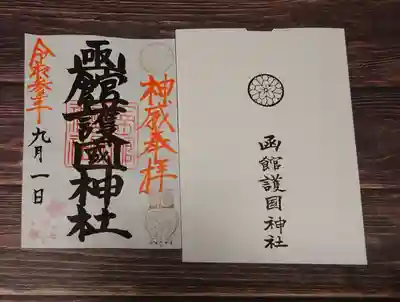 神威奉拝
函館護國神社
令和参年
九月一日
函館護国神社